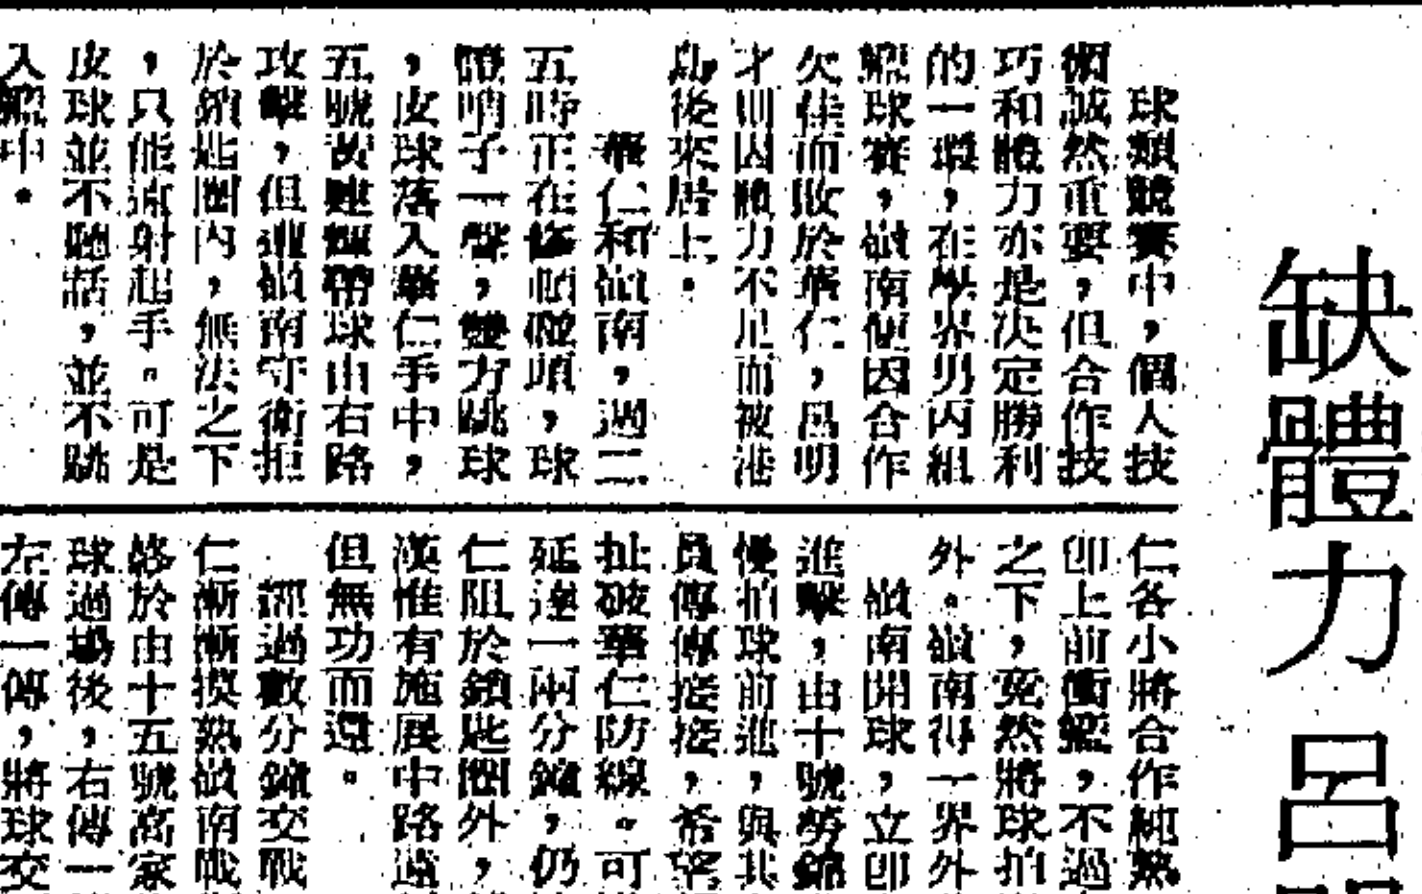 缺體力 呂
球類競賽中，個人技
術誠然重要，但合作技
巧和體力亦是決定勝利
的一環，在學界男丙組
籃球賽，嶺南便因合作
欠佳而敗於華仁，呂明
才則因體力不足而被港
島後來居上。
華仁和嶺南，週二
五時正在修頓碰頭，球
證哨子一聲，雙方跳球
，皮球落入華仁手中，
五號黃建輝帶球由右路
攻擊，但遭嶺南守衛拒
於鎖匙圈內，無法之下
，只能遠射起手。可是
皮球並不聽話，並不跳
入籃中。
仁各小將合作純熟
即上前衝籃，不過
之下，竟然將球拍
外。嶺南得一界外
嶺南開球，立即
進擊，由十號勞錦
慢拍球前進，與其
員傳傳接接，希望
扯破華仁防線。可
延達一兩分鐘，仍
仁阻於鎖匙圈外，
漢惟有施展中路遠
但無功而還。
經過數分鐘交戰
仁漸漸摸熟嶺南戰
終於由十五號高家
球過場後，右傳一
左傳一傳，將球交